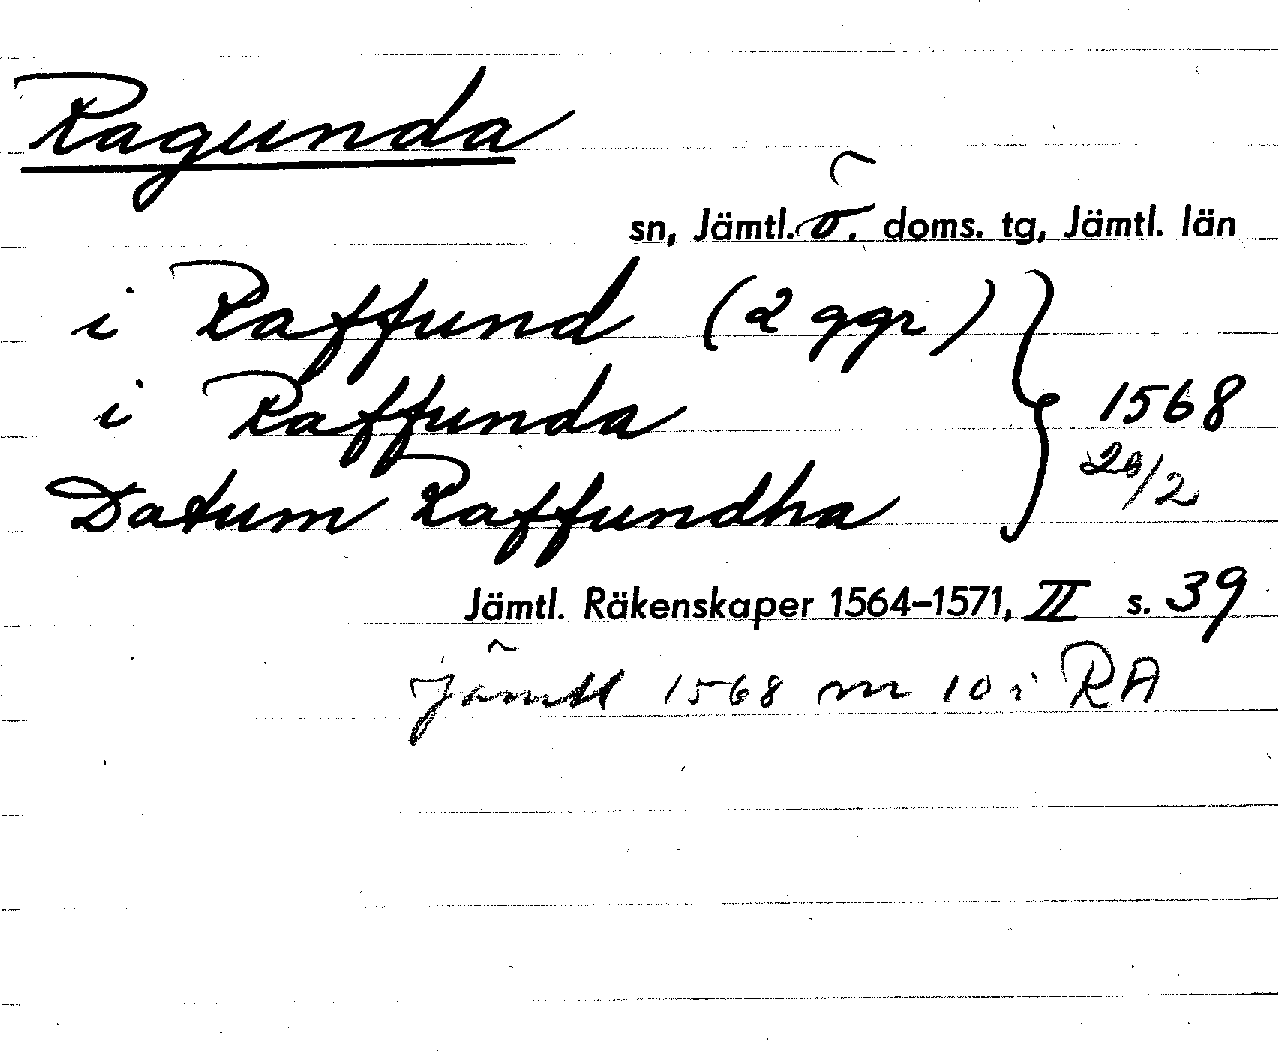 Ragunda
sn, Jämtl. ö. doms. tg, Jämtl. län
i Raffund (2 ggr)
i Raffunda
1568
20/2
Datum Raffundha
Jämtl. Räkenskaper 1564-1571, II s. 39
Jämtl 1568 nr 10 i RA